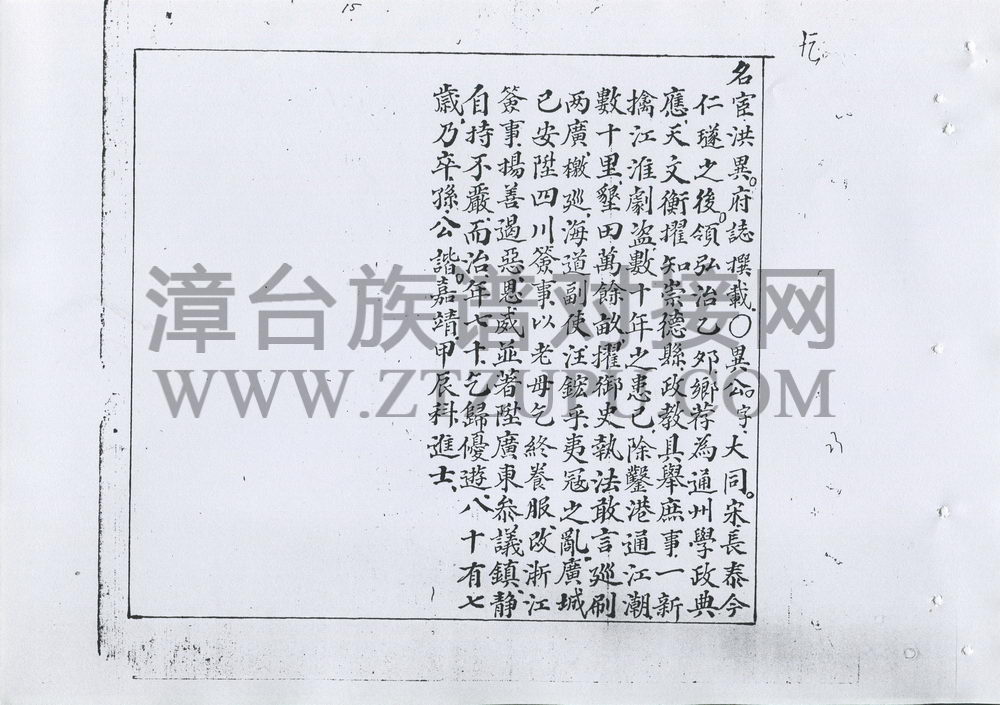 15
名宦洪異府誌撰載○異公字大同宋長泰今
仁璲之後領弘治乙夘鄉荐為通州學政典
應天文衡擢知崇德縣政教具舉庶事一新
擒江淮劇盜數十年之患已除鑿港通江潮
數十里墾田萬餘畝擢御史執法敢言廵刷
两廣檄廵海道副使汪鋐平夷冦之亂廣城
已安陞四川簽事以老母乞終養服改浙江
簽事揚善遏惡恩威並著陞廣東参議鎮静
自持不嚴而治年七十乞歸優遊八十有七
歲乃卒孫公諧嘉靖甲辰科進士
漳台族谱对接网
WWW.ZTZUPU.COM